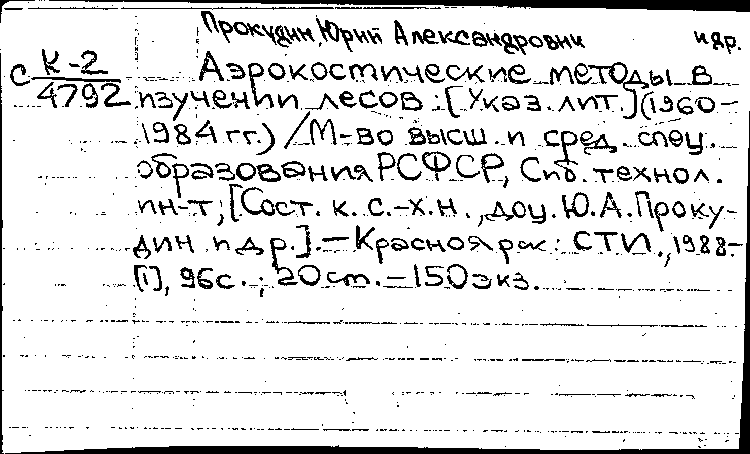 Прокудин, Юрий Александровии и др.
с К-2
4792
Аэрокостические методы в
изучении лесов: [Указ. лит.] (1960-
1984 гг.) / М-во высш. и сред. спец.
образования РСФСР, Сиб. технол.
ин-т; [Сост. к. с.-х.н., доц. Ю.А. Проку-
дин и др.]. - Красноярск: СТИ., 1988.-
[1], 96с.; 20ст. - 150 экз.